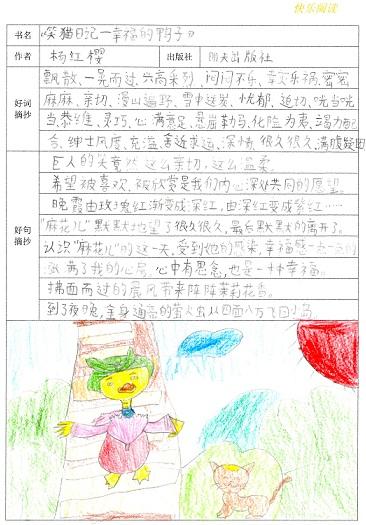 快乐阅读
书名 《笑猫日记—幸福的鸭子》
作者 杨红樱 出版社 明天出版社
好词摘抄 飘散、一晃而过、兴高采烈、闷闷不乐、幸灾乐祸、密密
麻麻、亲切、漫山遍野、雪中送炭、忧郁、迫切、
当、恭维、灵巧、心满意足、悬崖勒马、化险为夷、竭力配
合、绅士风度、充溢、善近求远、深情、很久很久、满腹疑团
好句摘抄 巨人的笑竟然这么亲切,这么温柔
希望被喜欢,被欣赏是我们内心深处共同的愿望。
晚霞由玫瑰红渐变成深红,由深红变成紫红……
"麻花儿"默默地望了很久很久,最后默默的离开了。
认识"麻花儿"的这一天,受到他的感染,幸福感一点一点的
涨满了我的心房,心中有思念,也是一种幸福。
拂面而过的晨风带来阵阵茉莉花香。
到了夜晚,全身通亮的萤火虫从四面八方飞回小岛。